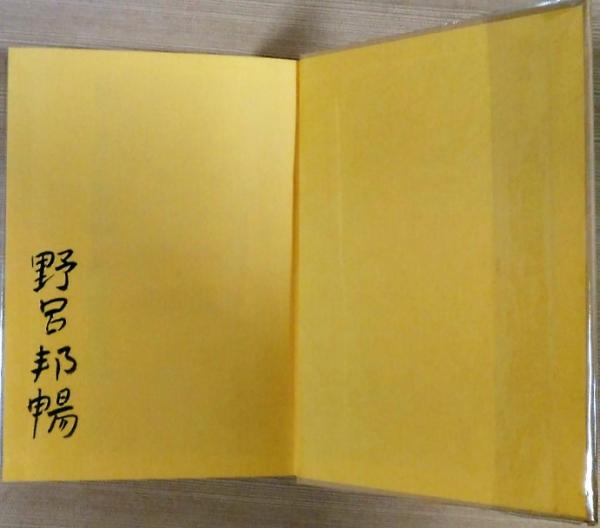 野呂邦暢